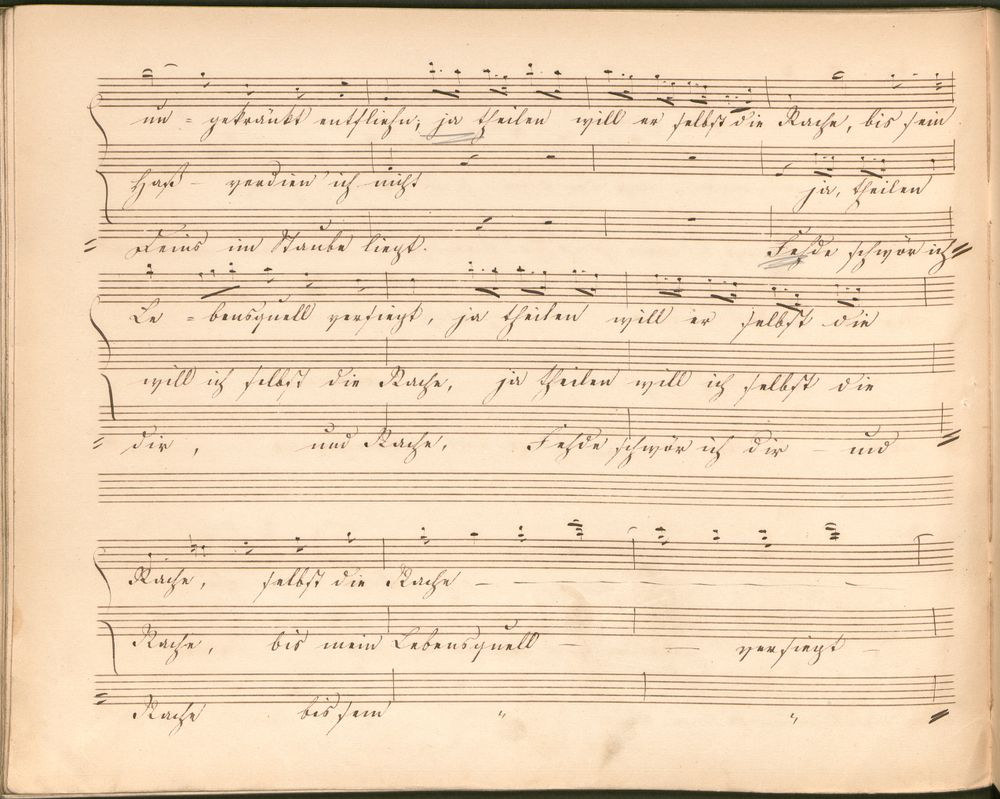 un = gekränkt entfliehn; ja theilen will er selbst die Rache, bis sein
Haß – verdien' ich nicht ja, theilen
Feins im Staube liegt. Fehde schwör ich
Le = bensquell versiegt, ja theilen will er selbst die
will ich selbst die Rache, ja theilen will ich selbst die
dir, und Rache, Fehde schwör ich dir – und
Rache, selbst die Rache – – – –
Rache, bis mein Lebensquell – – versiegt –
Rache bis sein " "